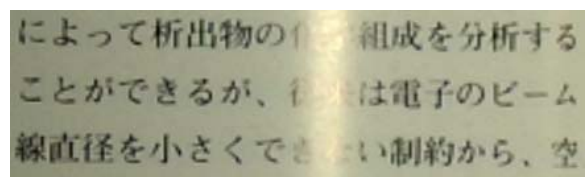 によって析出物の化学組成を分析する
ことができるが、従来は電子のビーム
線直径を小さくできない制約から、空